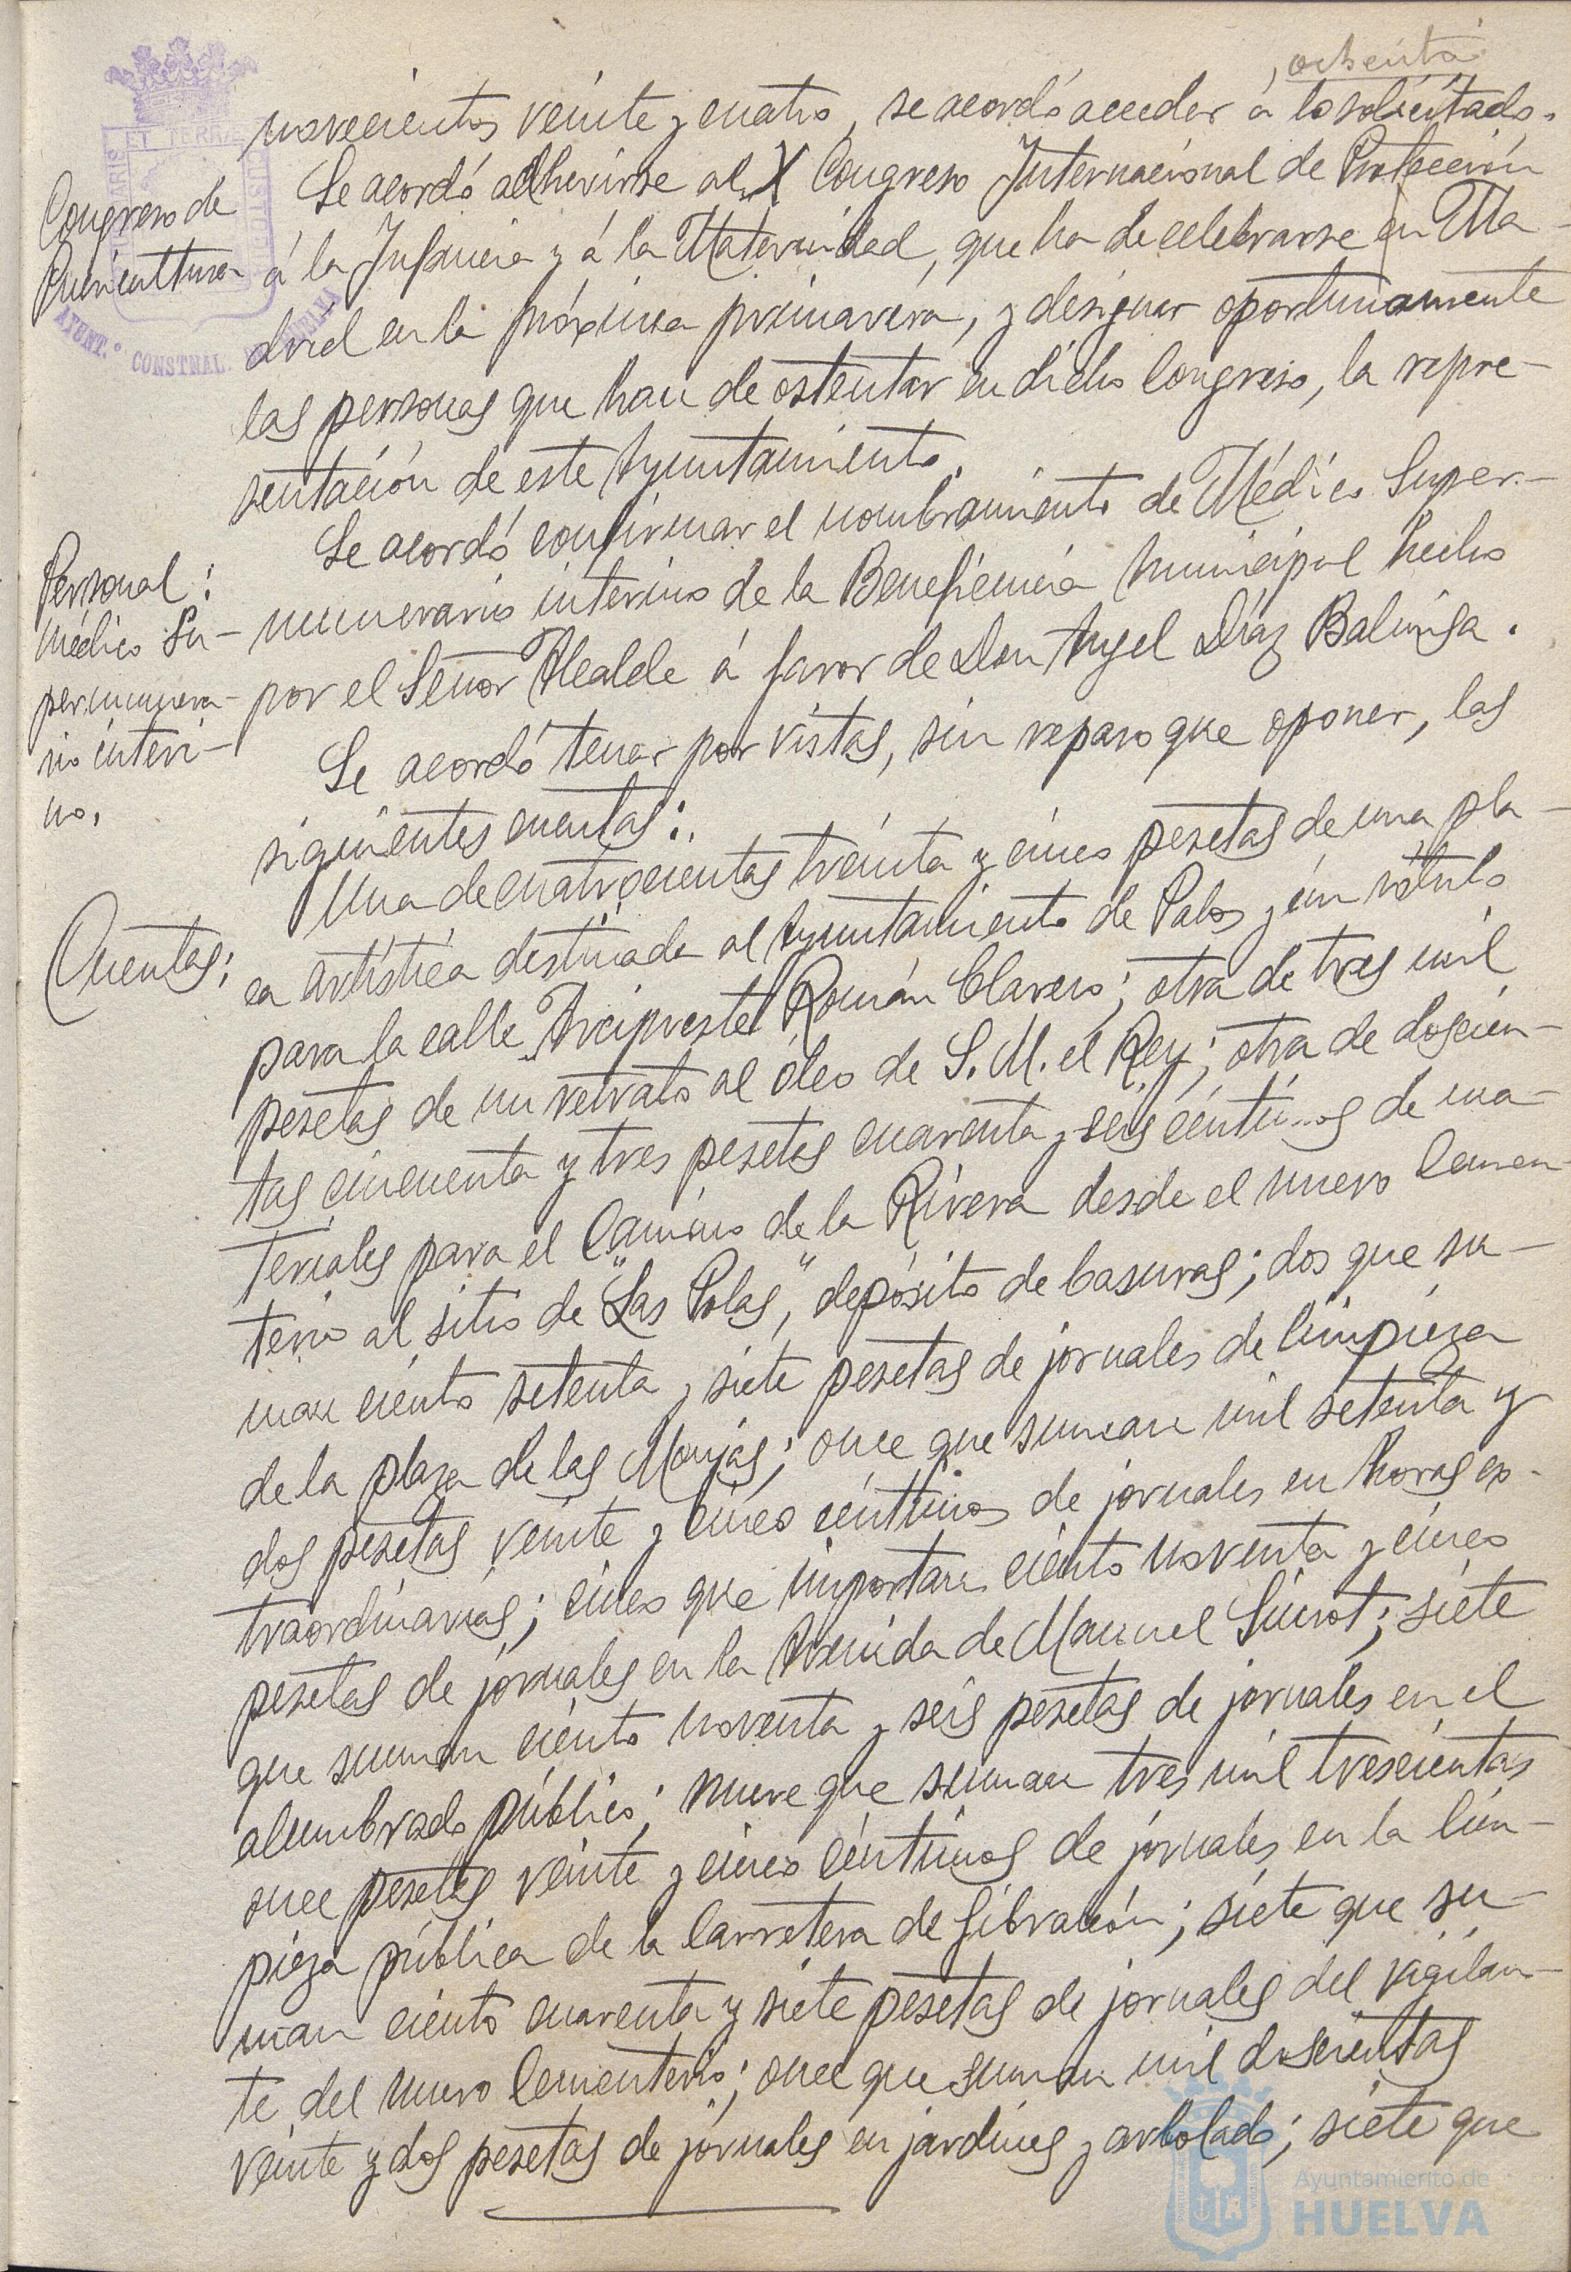 , ochenta
novecientos veinte y cuatro, se acordó acceder á lo solicitado.
Congreso de
Puericultura
Se acordó adherirse al X Congreso Internacional de Protección
á la Infancia y á la Maternidad, que ha de celebrarse en Ma-
drid en la próxima primavera, y designar oportunamente
las personas que han de ostentar en dicho Congreso, la repre-
sentación de este Ayuntamiento.
Personal:
Médico Su-
pernumera-
rio interi-
no.
Se acordó confirmar el nombramiento de Médico Super-
numerario interino de la Beneficencia Municipal hecho
por el Señor Alcalde á favor de Don Angel Díaz Balunga.
Se acordó tener por vistas, sin reparo que oponer, las
siguientes cuentas:
Cuentas:
Una de cuatrocientas treinta y cinco pesetas de una pla-
ca artística destinada al Ayuntamiento de Palos y un rótulo
para la calle Arcipreste Román Clavero; otra de tres mil
pesetas de un retrato al óleo de S. M. el Rey; otra de doscien-
tas cincuenta y tres pesetas cuarenta y seis céntimos de ma-
teriales para el Camino de la Rivera desde el nuevo Cemen-
terio al sitio de "Las Polas", depósito de basuras; dos que su-
man ciento setenta y siete pesetas de jornales de limpieza
de la plaza de las Monjas; once que suman mil setenta y
dos pesetas veinte y cinco céntimos de jornales en horas ex-
traordinarias; cinco que importan ciento noventa y cinco
pesetas de jornales en la Avenida de Manuel Siurot; siete
que suman ciento noventa y seis pesetas de jornales en el
alumbrado público; nueve que suman tres mil trescientas
once pesetas veinte y cinco céntimos de jornales en la lim-
pieza pública de la Carretera de Gibraleón; siete que su-
man ciento cuarenta y siete pesetas de jornales del vigilan-
te del nuevo Cementerio; once que suman mil doscientas
veinte y dos pesetas de jornales en jardines y arbolado; siete que
ET TERRAE
AYUNT.º CONSTNAL. DE HUELVA
Ayuntamiento de
HUELVA